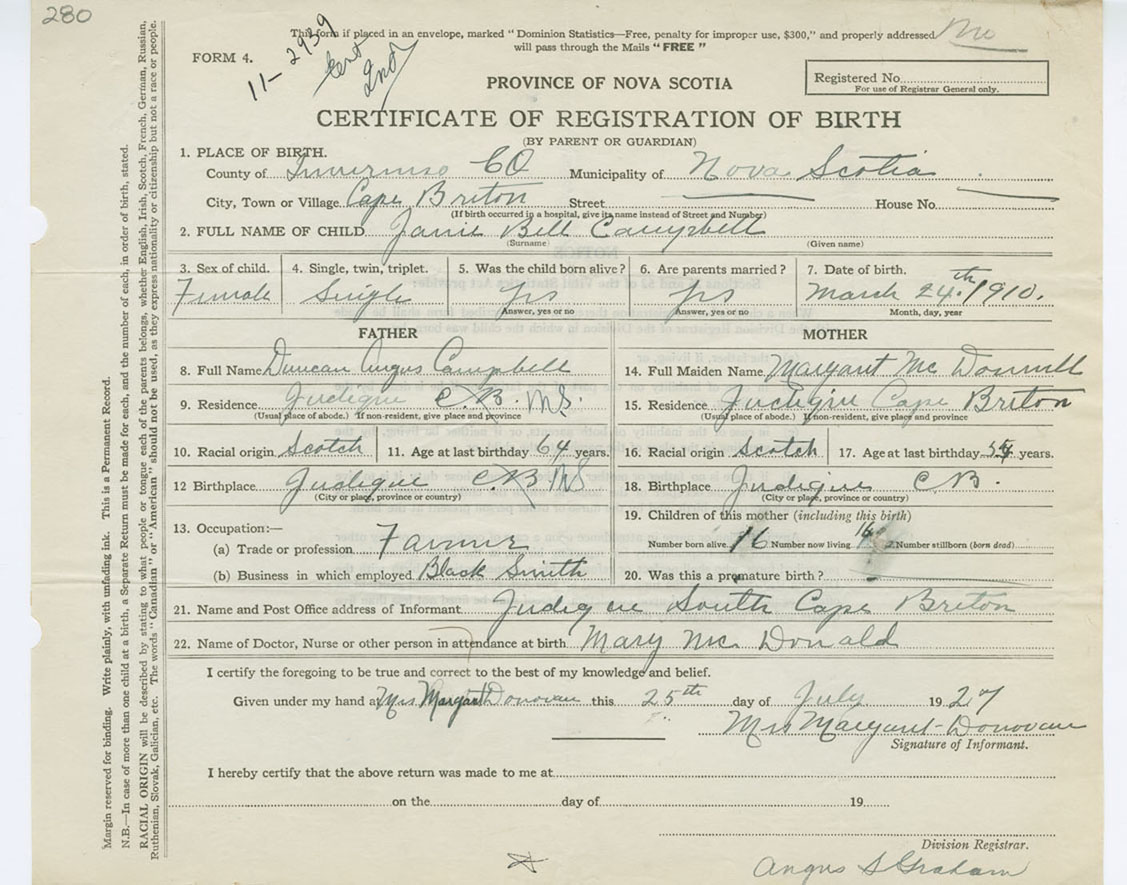 280
This form if placed in an envelope, marked “ Dominion Statistics—Free, penalty for improper use, $300,” and properly addressed
will pass through the Mails “ FREE ”
No
FORM 4.
11- 2939
2nd
PROVINCE OF NOVA SCOTIA
Registered No.
For use of Registrar General only.
CERTIFICATE OF REGISTRATION OF BIRTH
(BY PARENT OR GUARDIAN)
1. PLACE OF BIRTH.
County of Inverness CO Municipality of Nova Scotia
City, Town or Village. Cape Briton Street House No.
(If birth occurred in a hospital, give its name instead of Street and Number)
2. FULL NAME OF CHILD Janie Bell Campbell
(Surname) (Given name)
3. Sex of child. 4. Single, twin, triplet. 5. Was the child born alive? 6. Are parents married? 7. Date of birth.
Female Single yes yes March 24.th 1910.
Answer, yes or no Answer, yes or no Month, day, year
FATHER MOTHER
8. Full Name Duncan Angus Campbell 14. Full Maiden Name. Margaret Mc Donnell
9. Residence Judique C.B. N.S. 15. Residence Judique Cape Briton
(Usual place of abode.) If non-resident, give place and province (Usual place of abode.) If non-resident, give place and province
10. Racial origin Scotch 11. Age at last birthday 64 years. 16. Racial origin Scotch 17. Age at last birthday years.
12 Birthplace Judique C.B NS 18. Birthplace Judique C B.
(City or place, province or country) (City or place, province or country)
13. Occupation:— 19. Children of this mother (including this birth)
(a) Trade or profession Farmer Number born alive. 16 Number now living. 16 Number stillborn (born dead)
(b) Business in which employed Black Smith 20. Was this a premature birth?
21. Name and Post Office address of Informant Judique South Cape Briton
22. Name of Doctor, Nurse or other person in attendance at birth Mary Mc Donald
I certify the foregoing to be true and correct to the best of my knowledge and belief.
Given under my hand at Mrs Margaret Donovan this 25th day of July 1927
Mrs Margaret Donovan
Signature of Informant.
I hereby certify that the above return was made to me at
on the day of 19
Division Registrar.
Angus S Graham
Margin reserved for binding. Write plainly, with unfading ink. This is a Permanent Record.
N.B.—In case of more than one child at a birth, a Separate Return must be made for each, and the number of each, in order of birth, stated.
RACIAL ORIGIN will be described by stating to what people or tongue each of the parents belongs, whether English, Irish, Scotch, French, German, Russian,
Ruthenian, Slovak, Galician, etc. The words “ Canadian ” or “ American ” should not be used, as they express nationality or citizenship but not a race or people.